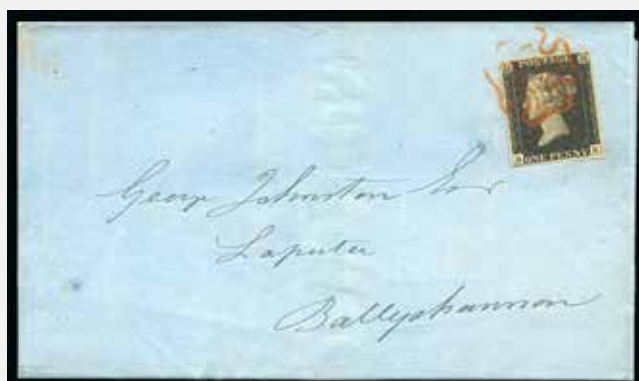 POSTAGE
ONE PENNY
George Johnston Esqr
Laputa
Ballyshannon